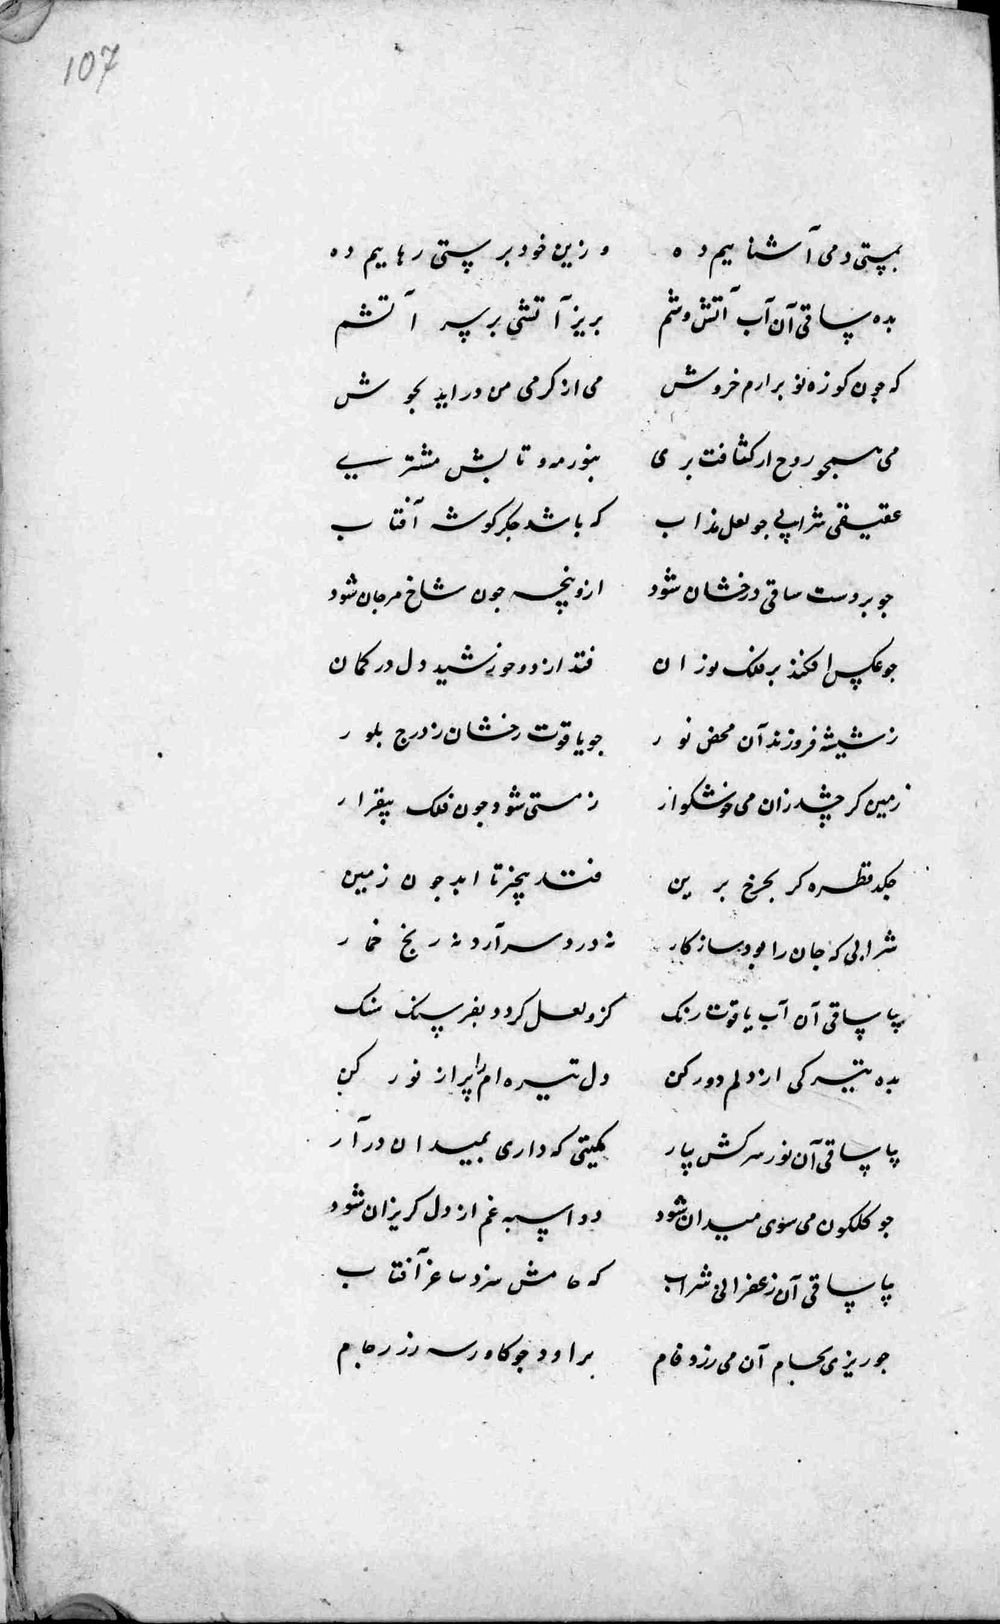 107
بمستی دمی آشناییم ده وزین خود پرستی رهاییم ده
بده ساقی آن آب آتش وشم بریز آتشی بر سر آتشم
که جون کوزه نو برارم خروش می از کرمی من دراید بجوش
می همجو روح از کثافت بری بنور مه و تابش مشتری
عقیقی شرابی جو لعل مذاب که باشد جکر کوشه آفتاب
جو بر دست ساقی درخشان شود ازو پنجه جون شاخ مرجان شود
جو عکس افکند بر فلک نور آن فتد از دو خورشید دل در کمان
ز شیشه فروزند آن محض نور جو یاقوت رخشان ز درج بلور
زمین کر جشد زان می خوشکوار ز مستی شود جون فلک بیقرار
جکد قطره کر بجرخ برین فتد بیخبر تا ابد جون زمین
شرابی که جان را بود سازکار نه درد سر آرد نه رنج خمار
بیا ساقی آن آب یاقوت رنک کزو لعل کردد بفرسنک سنک
بده تیرکی از دلم دور کن دل تیره ام را پر از نور کن
بیا ساقی آن نور سرکش بیار کمیتی که داری بمیدان درآر
جو کلکون می سوی میدان شود دو اسبه غم از دل کریزان شود
بیا ساقی آن زعفرانی شراب که جامش سزد ساغر آفتاب
جو ریزی بجام آن می زرد فام براود جو کاورسه زر ز جام